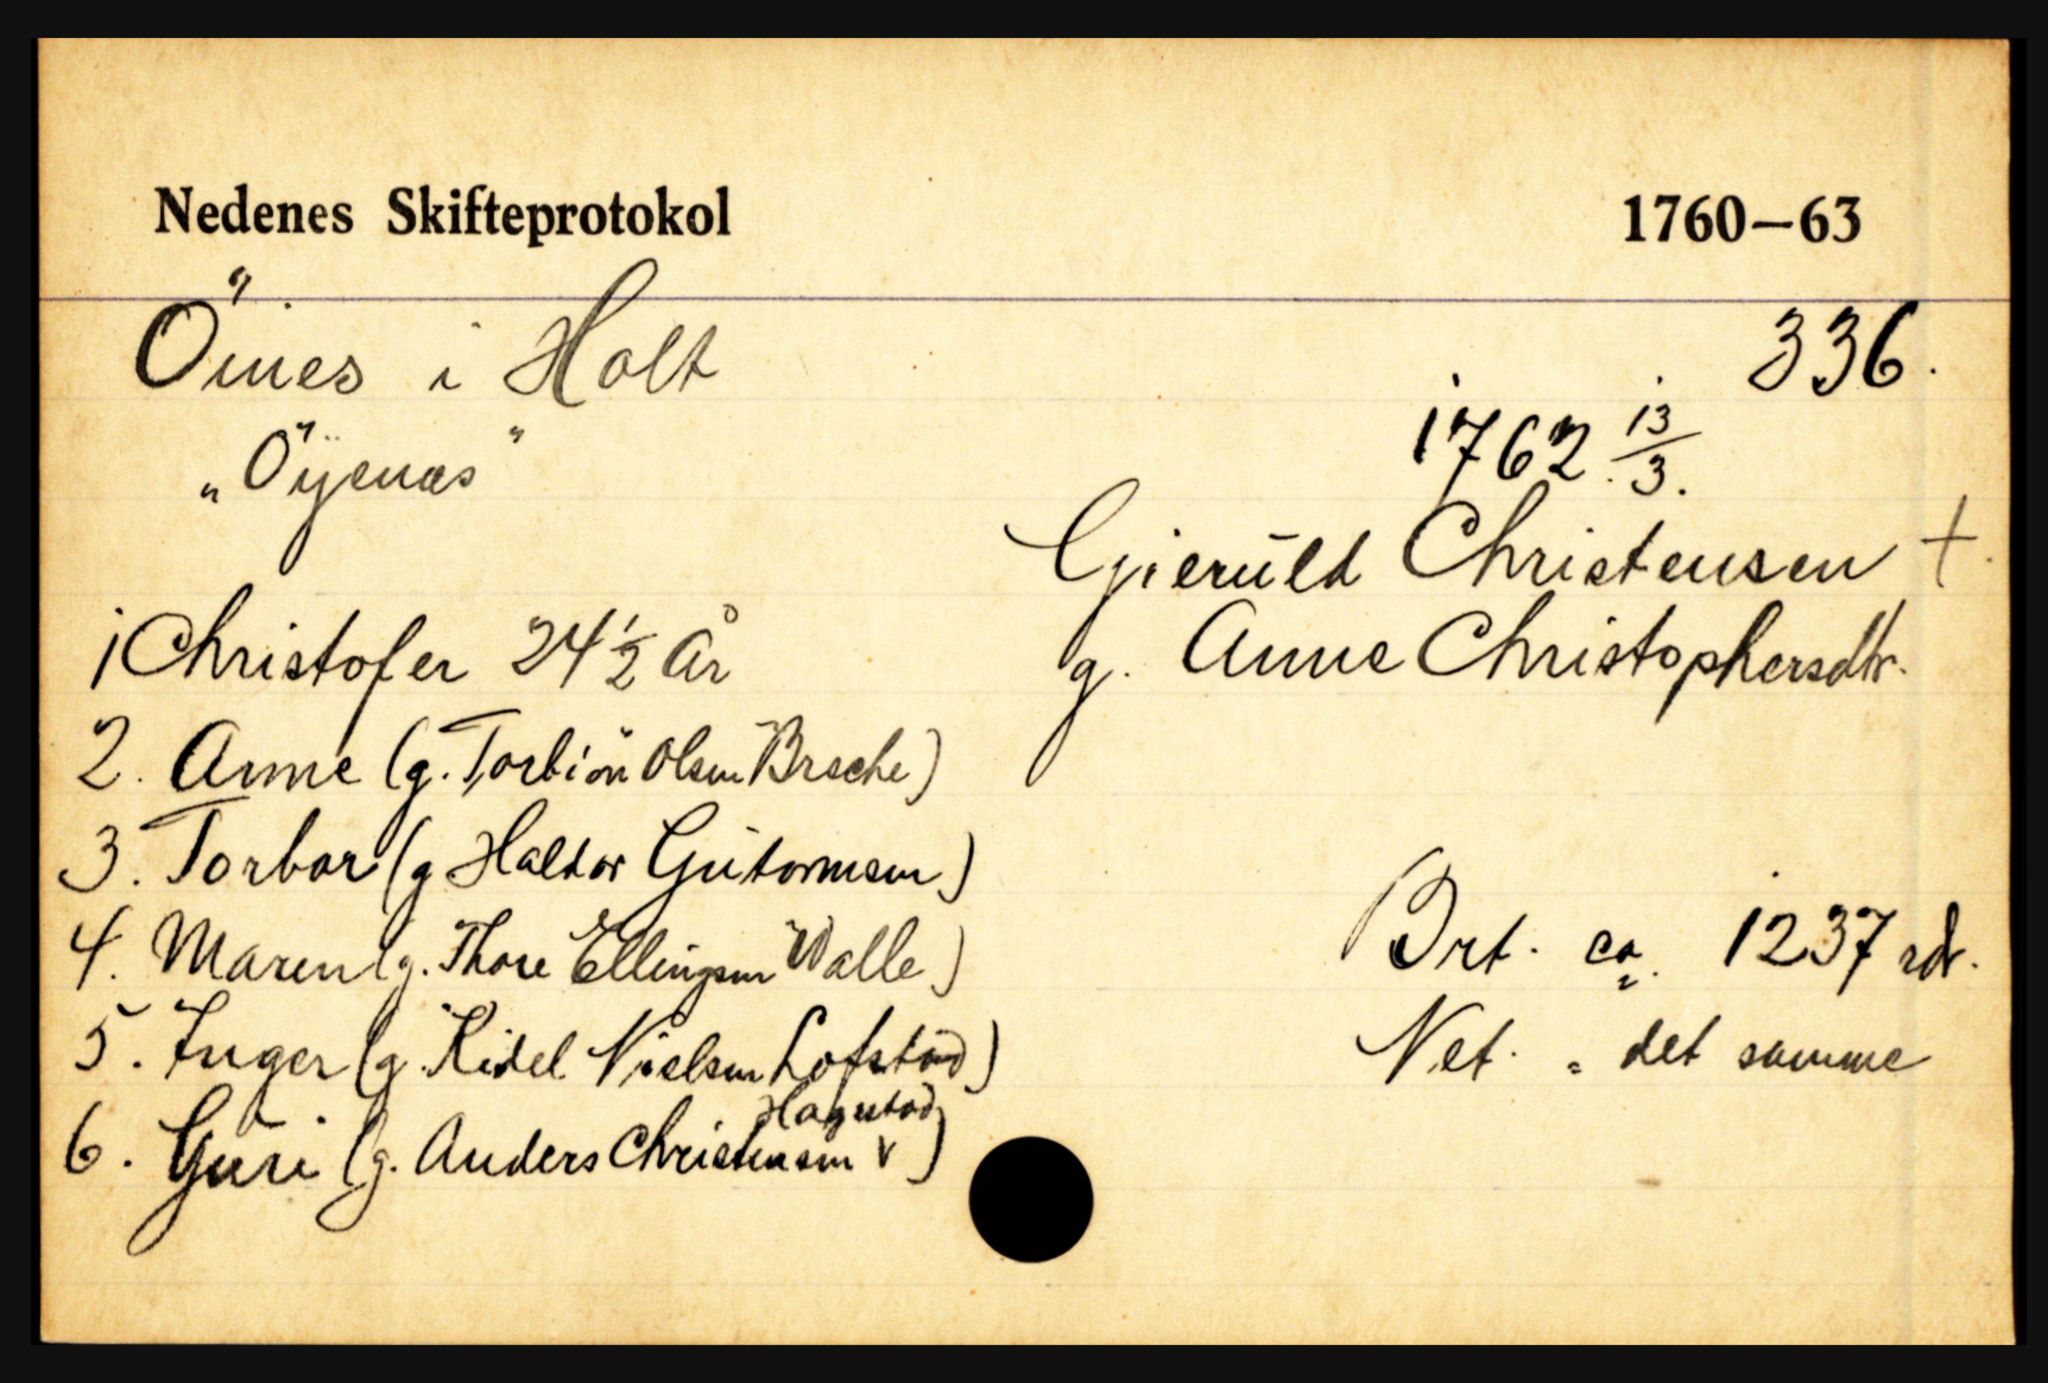 Nedenes Skifteprotokol 1760–63
Öines i Holt 336.
"Öÿenæs"
1762 13/3.
Gierüld Christensen +.
g. Anne Christophersdtr.
1 Christofer 24 1/2 År
2. Anne (g. Torbiön Olsen Brsche)
3. Torbor (g Haldor Gütormsen)
4. Maren (g. Thore Ellingsen Walle)
5. Inger (g. Kidel Nielsen Lofstad)
Hagestad
6. Güri (g. Anders Christensen v)
Brt. ca. 1237 rdr.
Net. " det samme